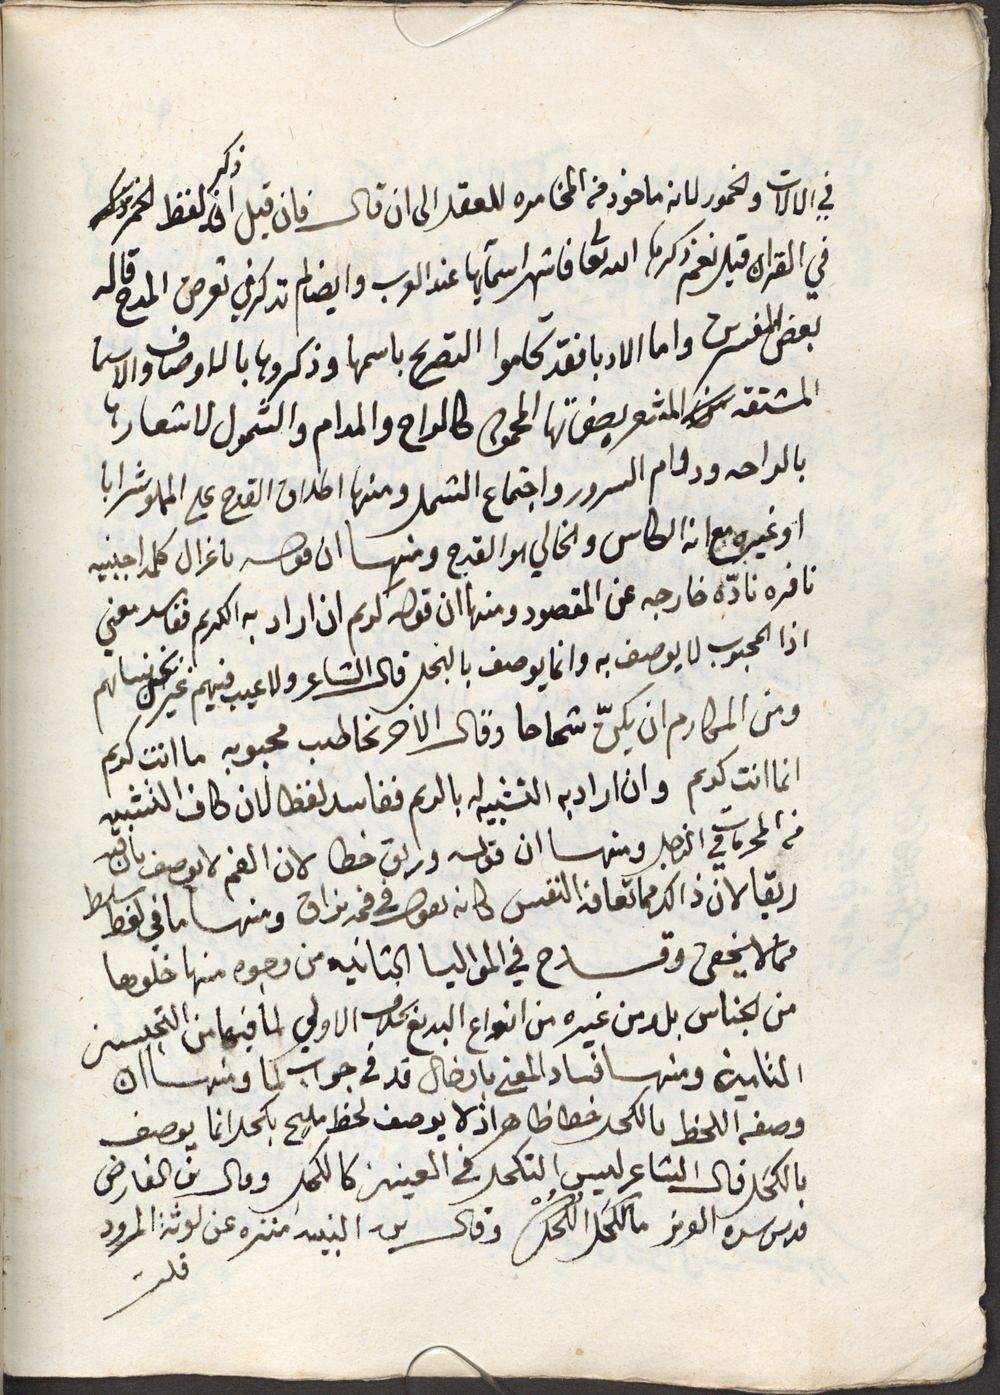 ذكر
في الالات والخمور لانه ماخوذ من المخامره للعقل الى ان قال فان قيل ان لفظ الخمر
في القران قيل نعم ذكرها الله تعا فاشهر اسمآيها عند العرب وايضا لم تذكر في تعرض المدح قاله
بعض المفسرين واما الادبا فقد تحاموا التصريح باسمها وذكروها بالاوصاف والاسما
المشتقه المشعر بصفاتها المحموده كالراح والمدام والشمول لاشعارها
بالراحه ودوام السرور واجتماع الشمل ومنها اطلاق القدح علي المملو شرابا
او غيره مع انه الكاس والخالي هو القدح ومنها ان قوله ياغزال كلمه اجنبيه
نافره نادّه خارجه عن المقصود ومنها ان قوله كريم ان اراد به الكرم ففاسد معني
اذا المحبوب لا يوصف به وانما يوصف بالبخل قال الشاعر ولا عيب فيهم غير بخل نسايهم
ومن المكارم ان يكنّ شحاحا وقال الاخر يخاطب محبوبه ما انت كريم
انما انت كريم وان اراد به التشبيه له بالريم ففاسد لفظا لان كاف التشبيه
من المحرمات في الزجل ومنها ان قوله وريق خطا لان الفم لا يوصف بان فيه
ريقا لان ذالك مما تعافه النفس كانه يقول في فمه بزاق ومنها ما في لفظ
مما لا يخفى وقدح في المواليا الثانيه من وجوه منها خلوها
من الجناس بل من غيره من انواع البديع بخلاف الاولي لما فيها من التجنيسين
التامين ومنها فساد المعني بادخال قد في جواب لما ومنها ان
وصفه اللحظ بالكحل خطا ظاهر اذ لا يوصف لحظ مليح بكحل انما يوصف
بالكحَل قال الشاعر ليس التكحل في العينين كالكحل وقال بن الفارض
قدس سره العزيز ما للكحل الكحل وقال بن النبيه منزه عن لوثة المرود
قلت